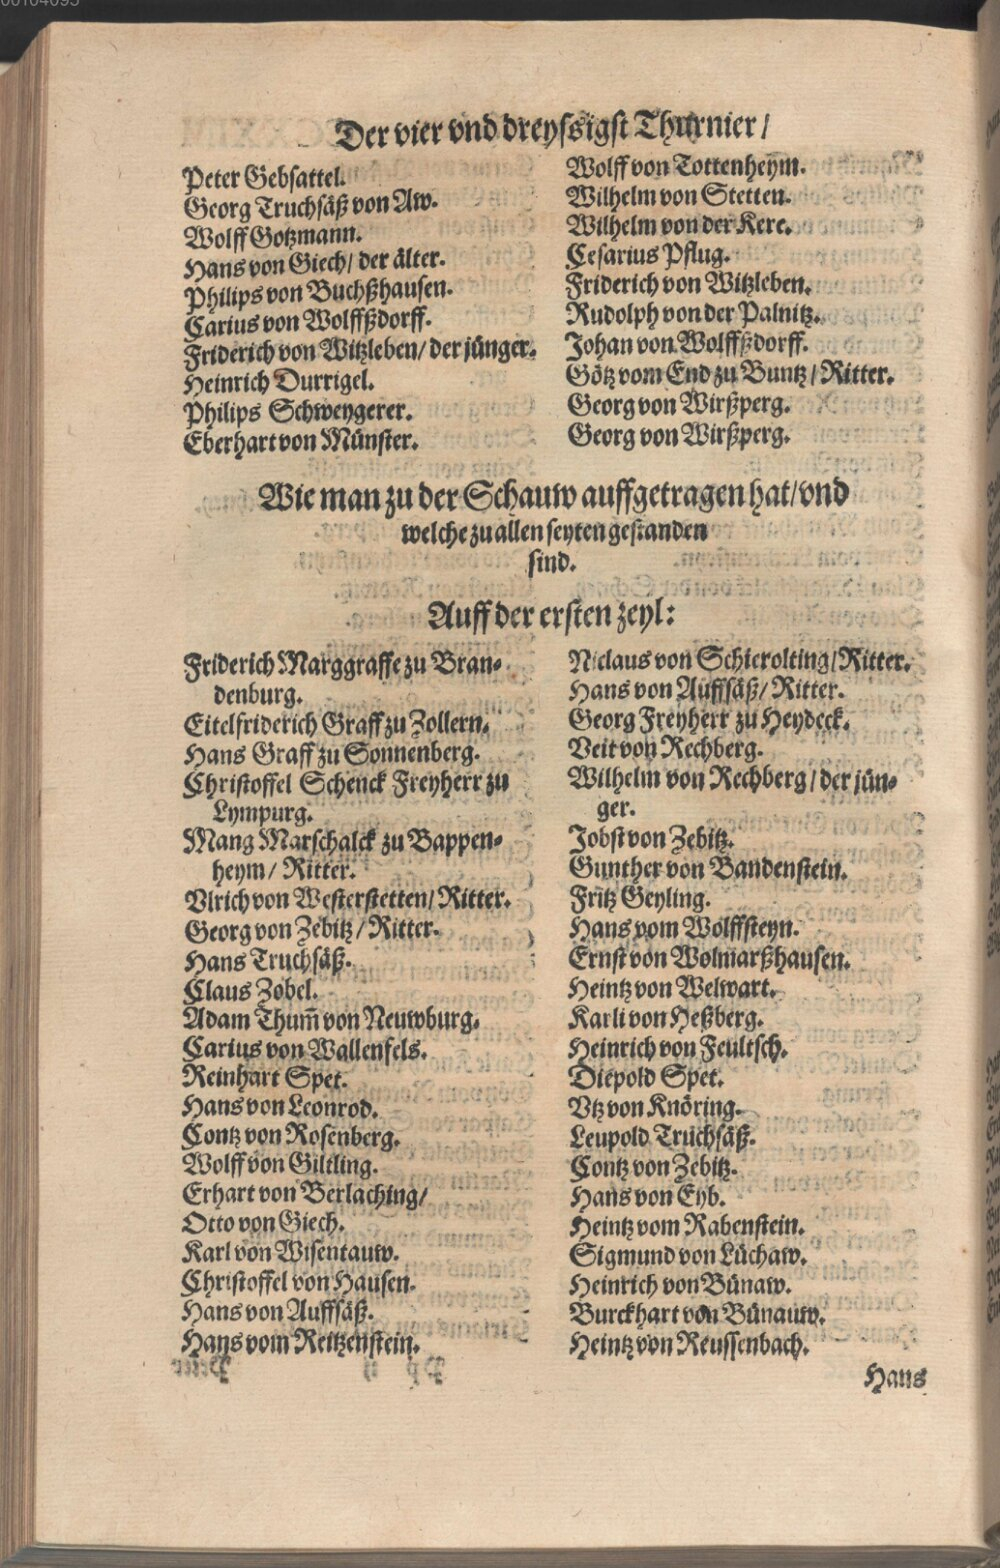 00104095
Der vier vnd dreyssigst Thurnier /
Peter Gebsattel.
Georg Truchsäß von Aw.
Wolff Gotzmann.
Hans von Giech / der älter.
Philips von Buchßhausen.
Carius von Wolffßdorff.
Friderich von Witzleben / der jünger.
Heinrich Durrigel.
Philips Schweygerer.
Eberhart von Münster.
Wolff von Tottenheym.
Wilhelm von Stetten.
Wilhelm von der Kere.
Cesarius Pflug.
Friderich von Witzleben.
Rudolph von der Palnitz.
Johan von Wolffßdorff.
Götz vom End zu Buntz / Ritter.
Georg von Wirßperg.
Georg von Wirßperg.
Wie man zu der Schauw auffgetragen hat / vnd
welche zu allen seyten gestanden
sind.
Auff der ersten zeyl:
Friderich Marggraffe zu Bran-
denburg.
Eitelfriderich Graff zu Zollern.
Hans Graff zu Sonnenberg.
Christoffel Schenck Freyherr zu
Lympurg.
Mang Marschalck zu Bappen-
heym / Ritter.
Vlrich von Westerstetten / Ritter.
Georg von Zebitz / Ritter.
Hans Truchsäß.
Claus Zobel.
Adam Thum̃ von Neuwburg.
Carius von Wallenfels.
Reinhart Spet.
Hans von Leonrod.
Contz von Rosenberg.
Wolff von Giltling.
Erhart von Berlaching /
Otto von Giech.
Karl von Wisentauw.
Christoffel von Hausen.
Hans von Auffsäß.
Hans vom Reitzenstein.
Niclaus von Schierolting / Ritter.
Hans von Auffsäß / Ritter.
Georg Freyherr zu Heydeck.
Veit von Rechberg.
Wilhelm von Rechberg / der jün-
ger.
Jobst von Zebitz.
Gunther von Bandenstein.
Fritz Geyling.
Hans vom Wolffsteyn.
Ernst von Wolmarßhausen.
Heintz von Welwart.
Karli von Heßberg.
Heinrich von Feultsch.
Diepold Spet.
Vtz von Knöring.
Leupold Truchsäß.
Contz von Zebitz.
Hans von Eyb.
Heintz vom Rabenstein.
Sigmund von Lüchaw.
Heinrich von Bünaw.
Burckhart von Bünauw.
Heintz von Reussenbach.
Hans